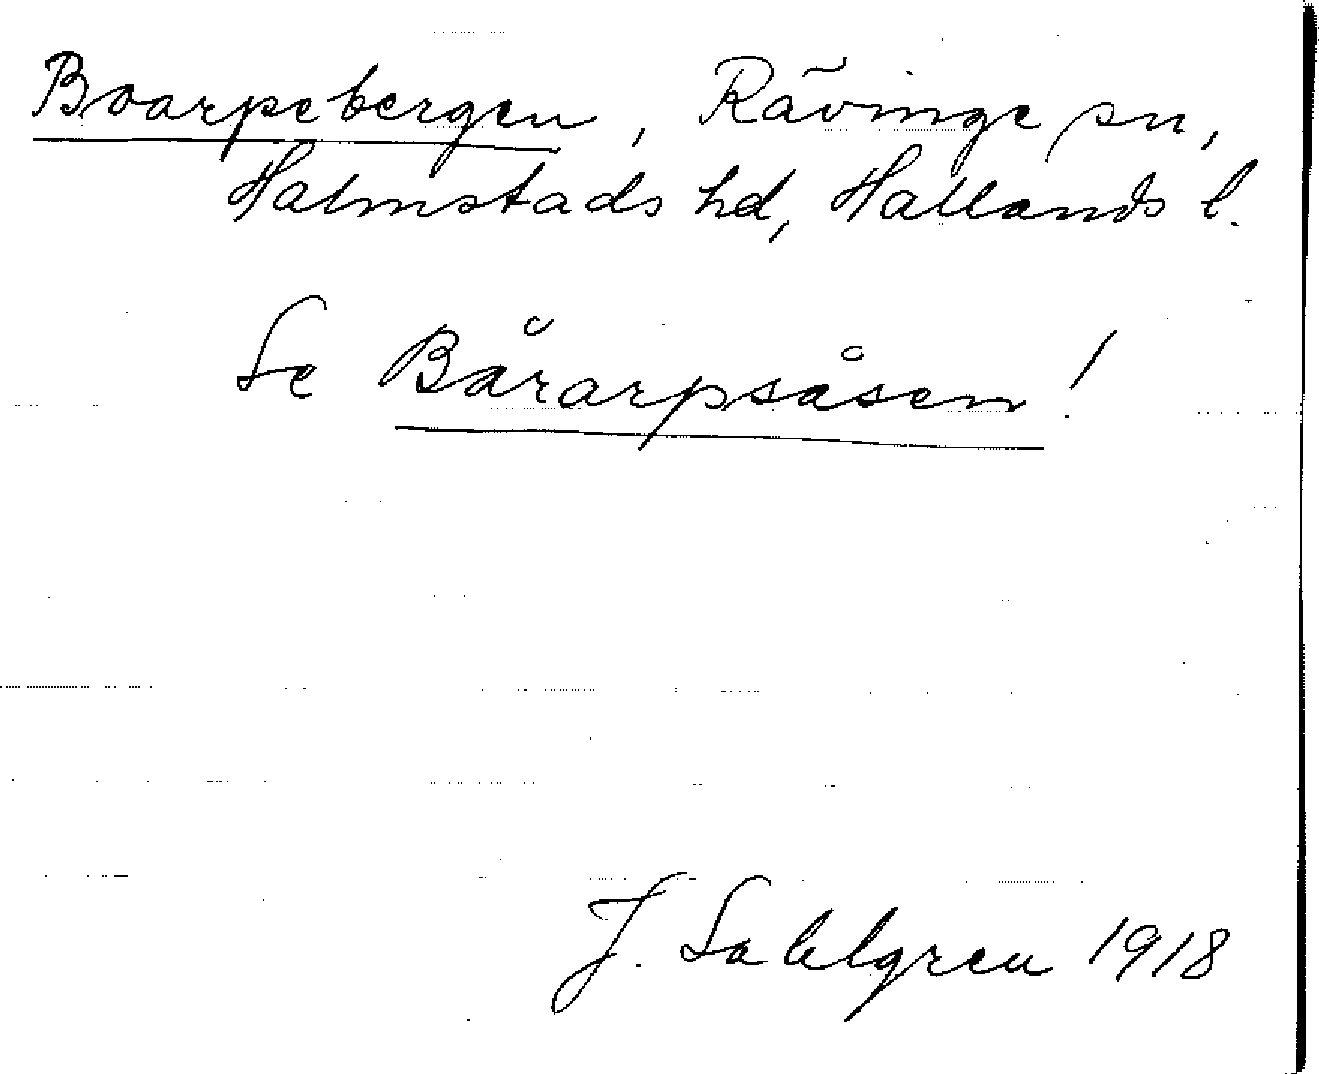 Boarpebergen, Rävinge sn,
Halmstads hd, Hallands l.
Se Bårarpsåsen!
J. Sahlgren 1918